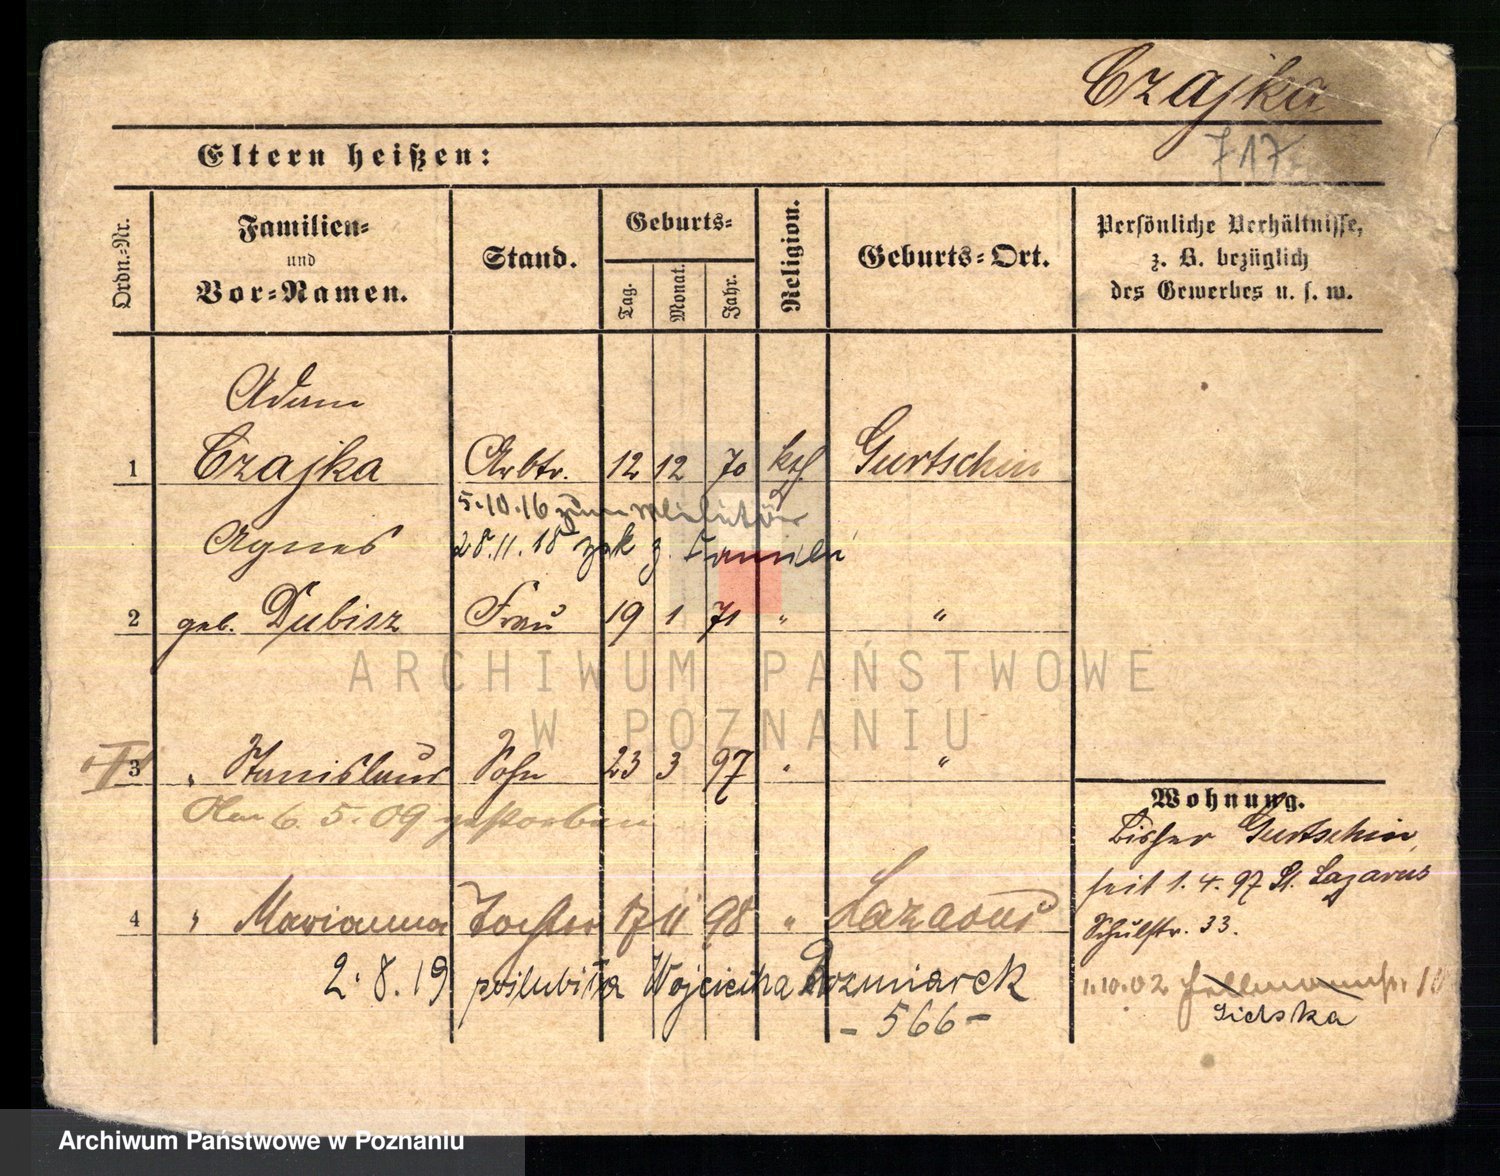 Czajka
717
Eltern heißen:
Ordn.-Nr.
Familien-
und
Vor-Namen.
Stand.
Geburts-
Tag.
Monat.
Jahr.
Religion.
Geburts-Ort.
Persönliche Verhältnisse,
z. B. bezüglich
des Gewerbes u. s. w.
Adam
1 Czajka Arbtr. 12 12 70 kth. Gurtschin
5.10.16 zum Militär
Agnes 28.11.18 zrk z. Familie
2 geb. Dubisz Frau 19 1 71 " "
3 " Stanislaus Sohn 23 3 97 " "
Am 6. 5. 09 gestorben
Wohnung.
Bisher Gurtschin,
seit 1. 4. 97 St. Lazarus
Schulstr. 33.
4 " Marianna Tochter 17 11 98 " Lazarus
2. 8. 19 poślubiła Wojciecha Rozmiarek
- 566 -
1.10.02
Sielska
ARCHIWUM PAŃSTWOWE
W POZNANIU
Archiwum Państwowe w Poznaniu